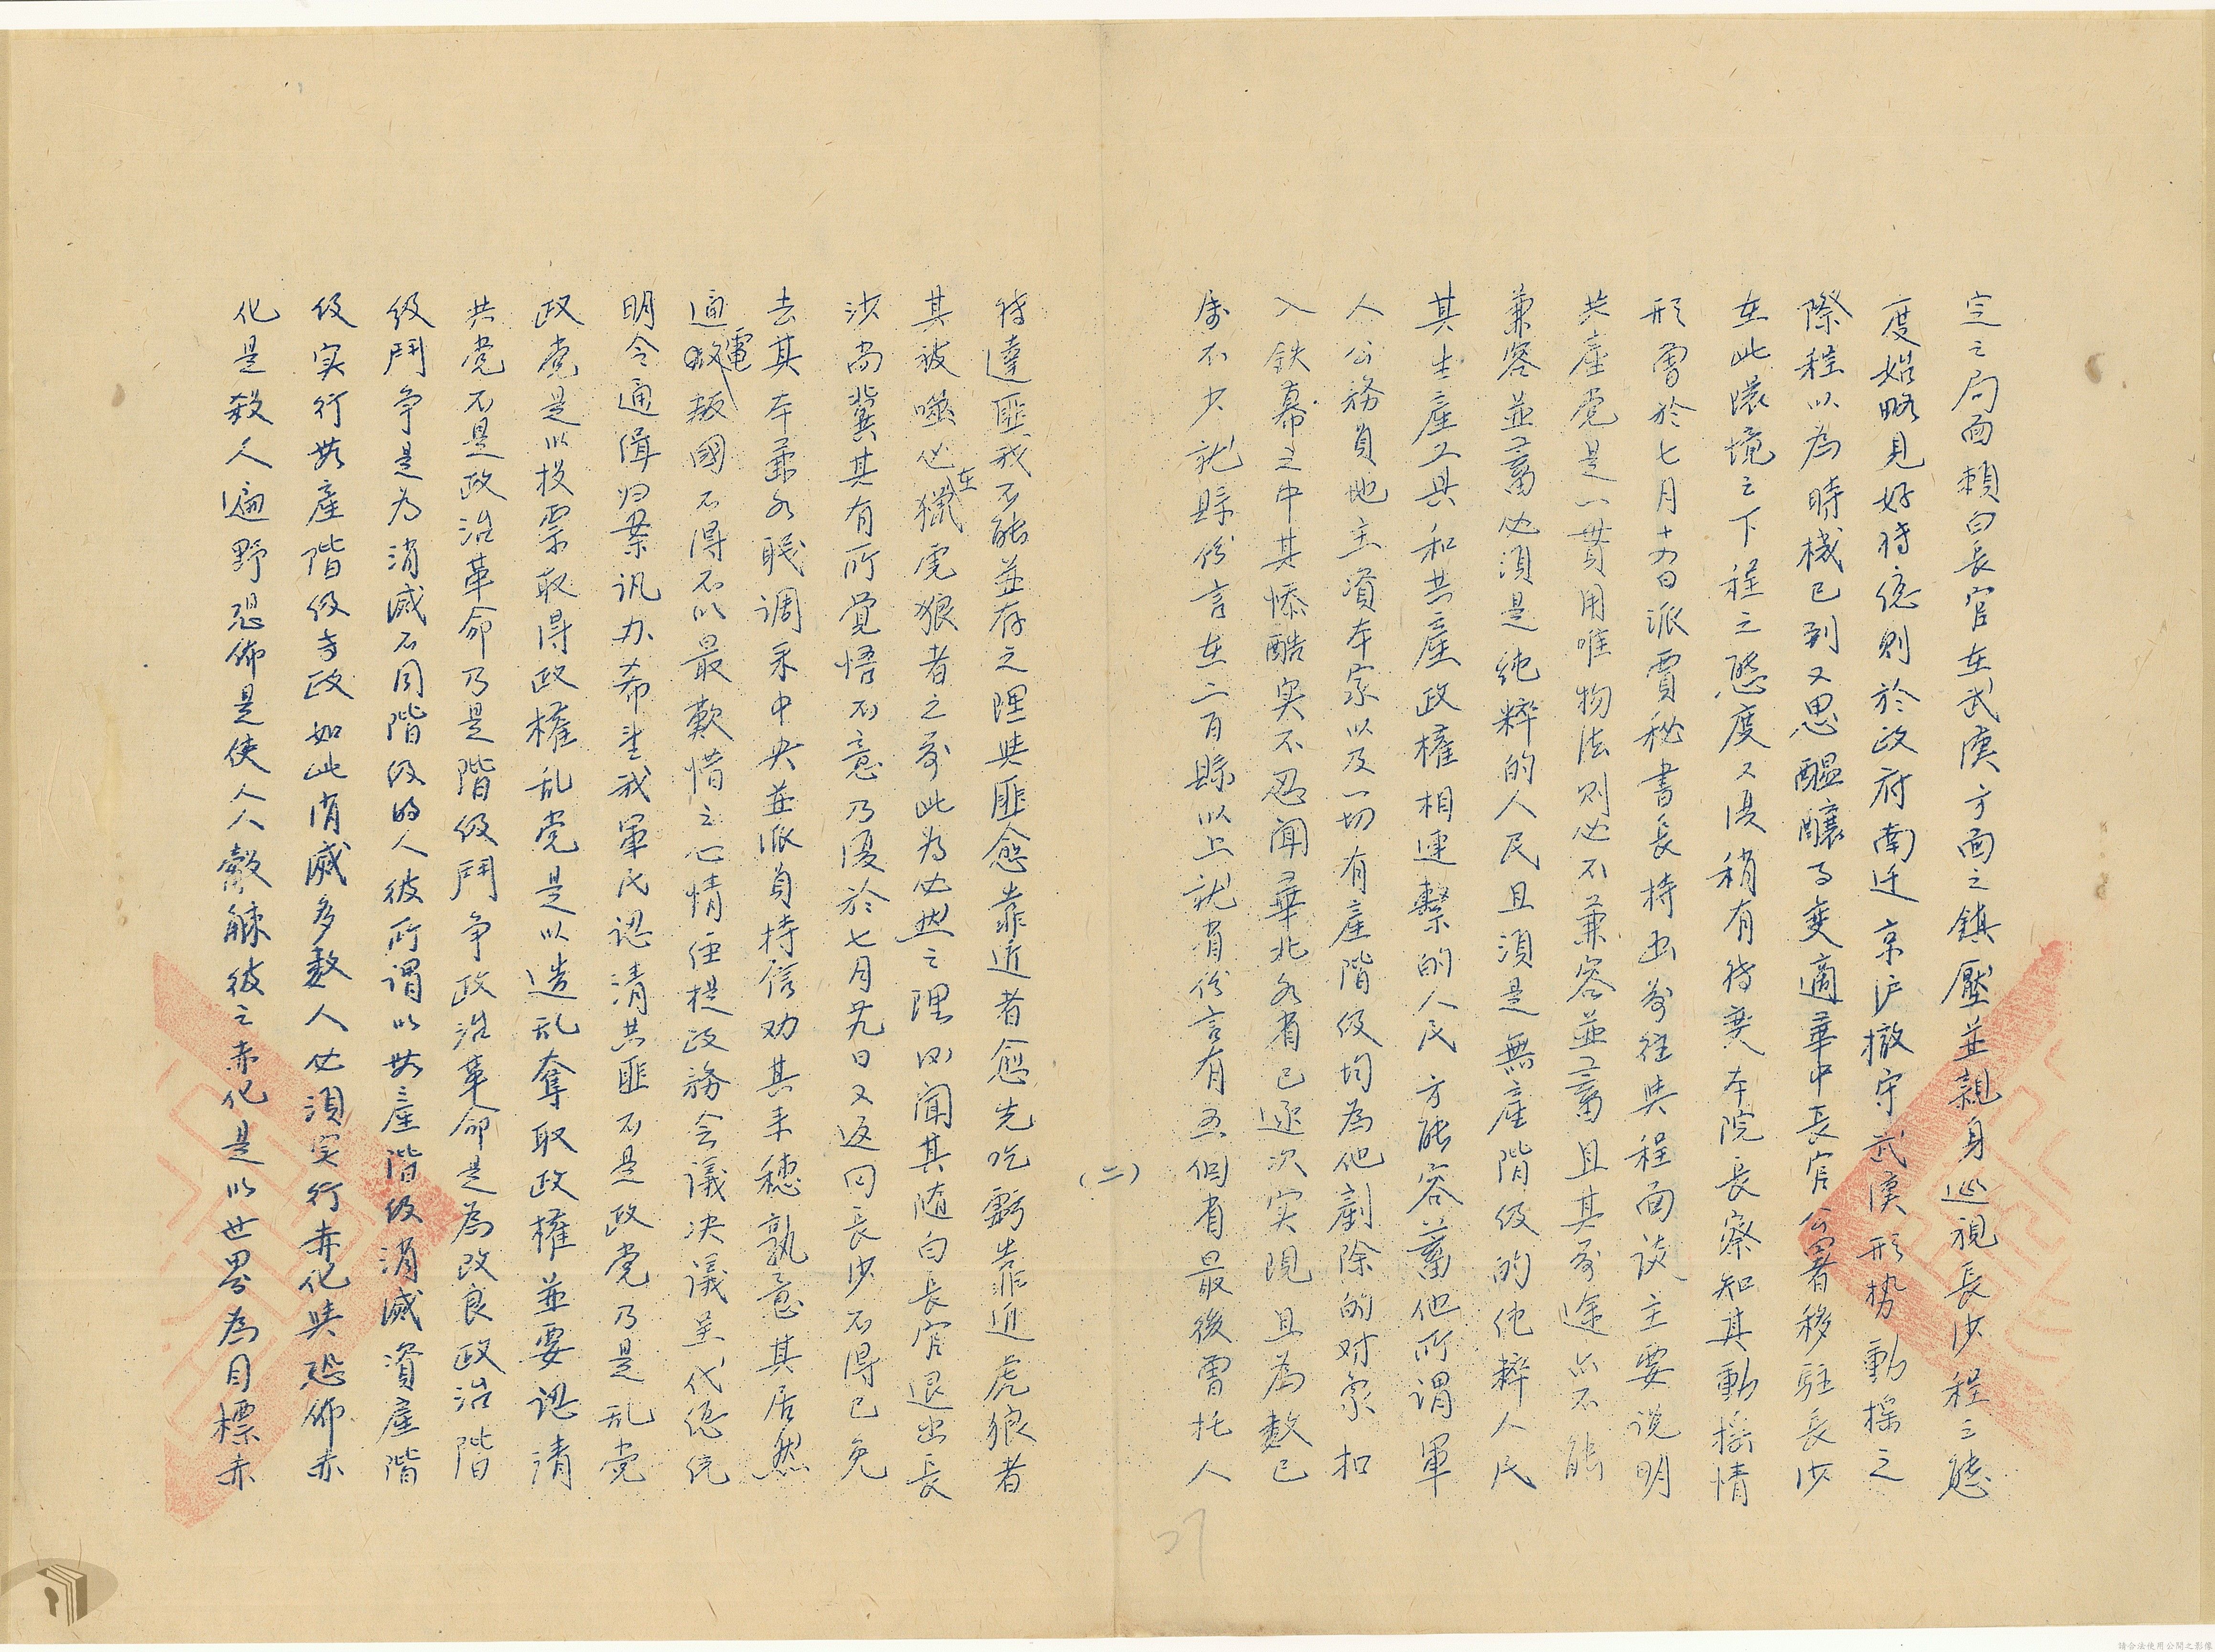 定之局面賴白長官在武漢方面之鎮壓並親身巡視長沙程之態
度始略見好轉迨則於政府南迁京沪撤守武漢形势動搖之
際程以為時機已到又思醞釀事变適華中長官公署移駐長沙
在此環境之下程之態度又復稍有转变本院長察知其動搖情
形曾於七月十九日派賈秘書長持函前往與程面談主要说明
共產党是一貫用唯物法则必不兼容並蓄且其前途亦不能
兼容並蓄必須是純粹的人民且須是無產階级的純粹人民
其生產工具和共產政權相連繫的人民方能容蓄他所谓軍
人公務員地主資本家以及一切有產階级均為他剷除的对象扣
入鉄幕之中其慘酷实不忍闻華北各省已逐次实現且為数已
属不少就縣份言在二百縣以上就省份言有五個省最後曾托人
(二)
转達匪我不能並存之理與匪愈靠近者愈先吃虧靠近虎狼者
其被噬必在獵虎狼者之前此為必然之理因闻其随白長官退出長
沙尚冀其有所覚悟不意乃復於七月廿九日又返回長沙不得已免
去其本兼各职调来中央並派員持信劝其来穗孰意其居然
通電叛國不得不以最歎惜之心情在提政務会議决議呈代總统
明令通缉归案讯办希望我軍民認清共匪不是政党乃是乱党
政党是以投票取得政權乱党是以造乱奪取政權並要認清
共党不是政治革命乃是階级鬥争政治革命是為改良政治階
级鬥争是为消滅不同階级的人彼所谓以无產階级消滅資產階
级实行无產階级专政如此消滅多数人必須实行赤化與恐佈赤
化是殺人遍野恐佈是使人人觳觫彼之赤化是以世界為目標赤
27
請合法使用公開之影像